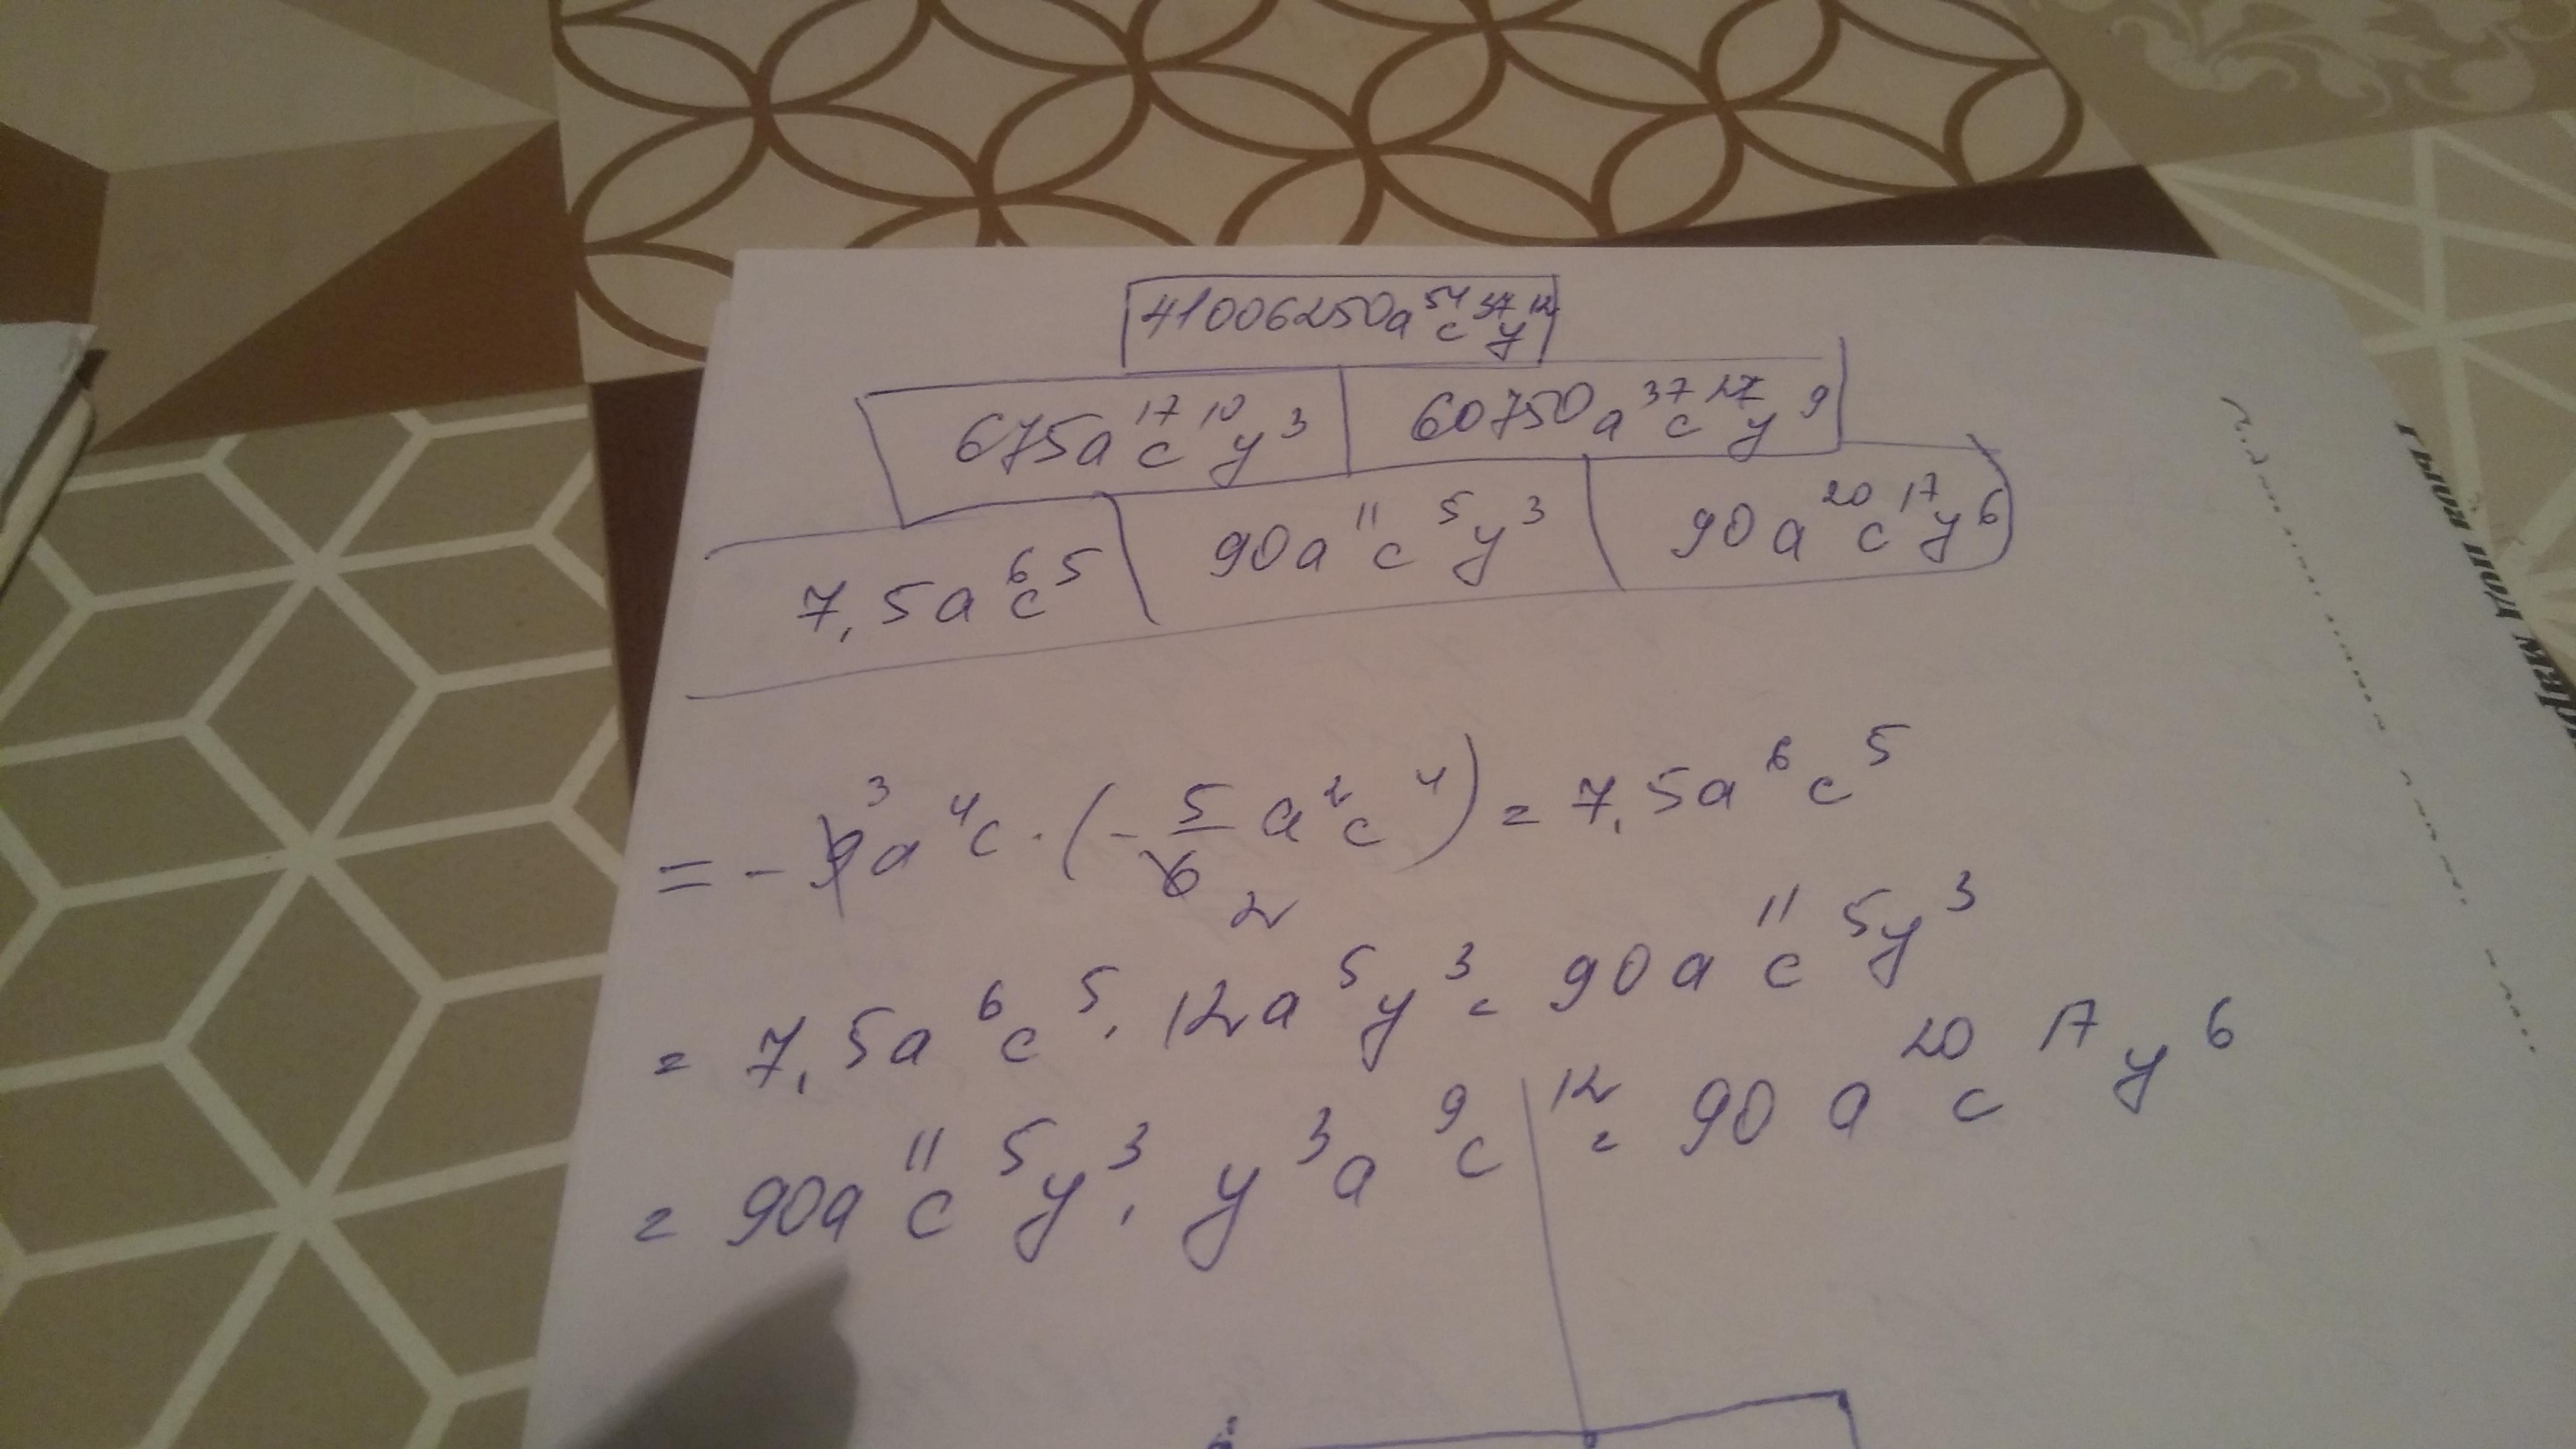 41006250a⁵⁴c³⁷y¹²
675a¹⁷c¹⁰y³ 60750a³⁷c²⁷y⁹
7,5a⁶c⁵ 90a¹¹c⁵y³ 90a²⁰c¹⁷y⁶
= - 9³a⁴c · (- 5/6 2 a²c⁴) = 7,5a⁶c⁵
= 7,5a⁶c⁵ · 12a⁵y³ = 90a¹¹c⁵y³
= 90a¹¹c⁵y³ · y³a⁹c¹² = 90a²⁰c¹⁷y⁶